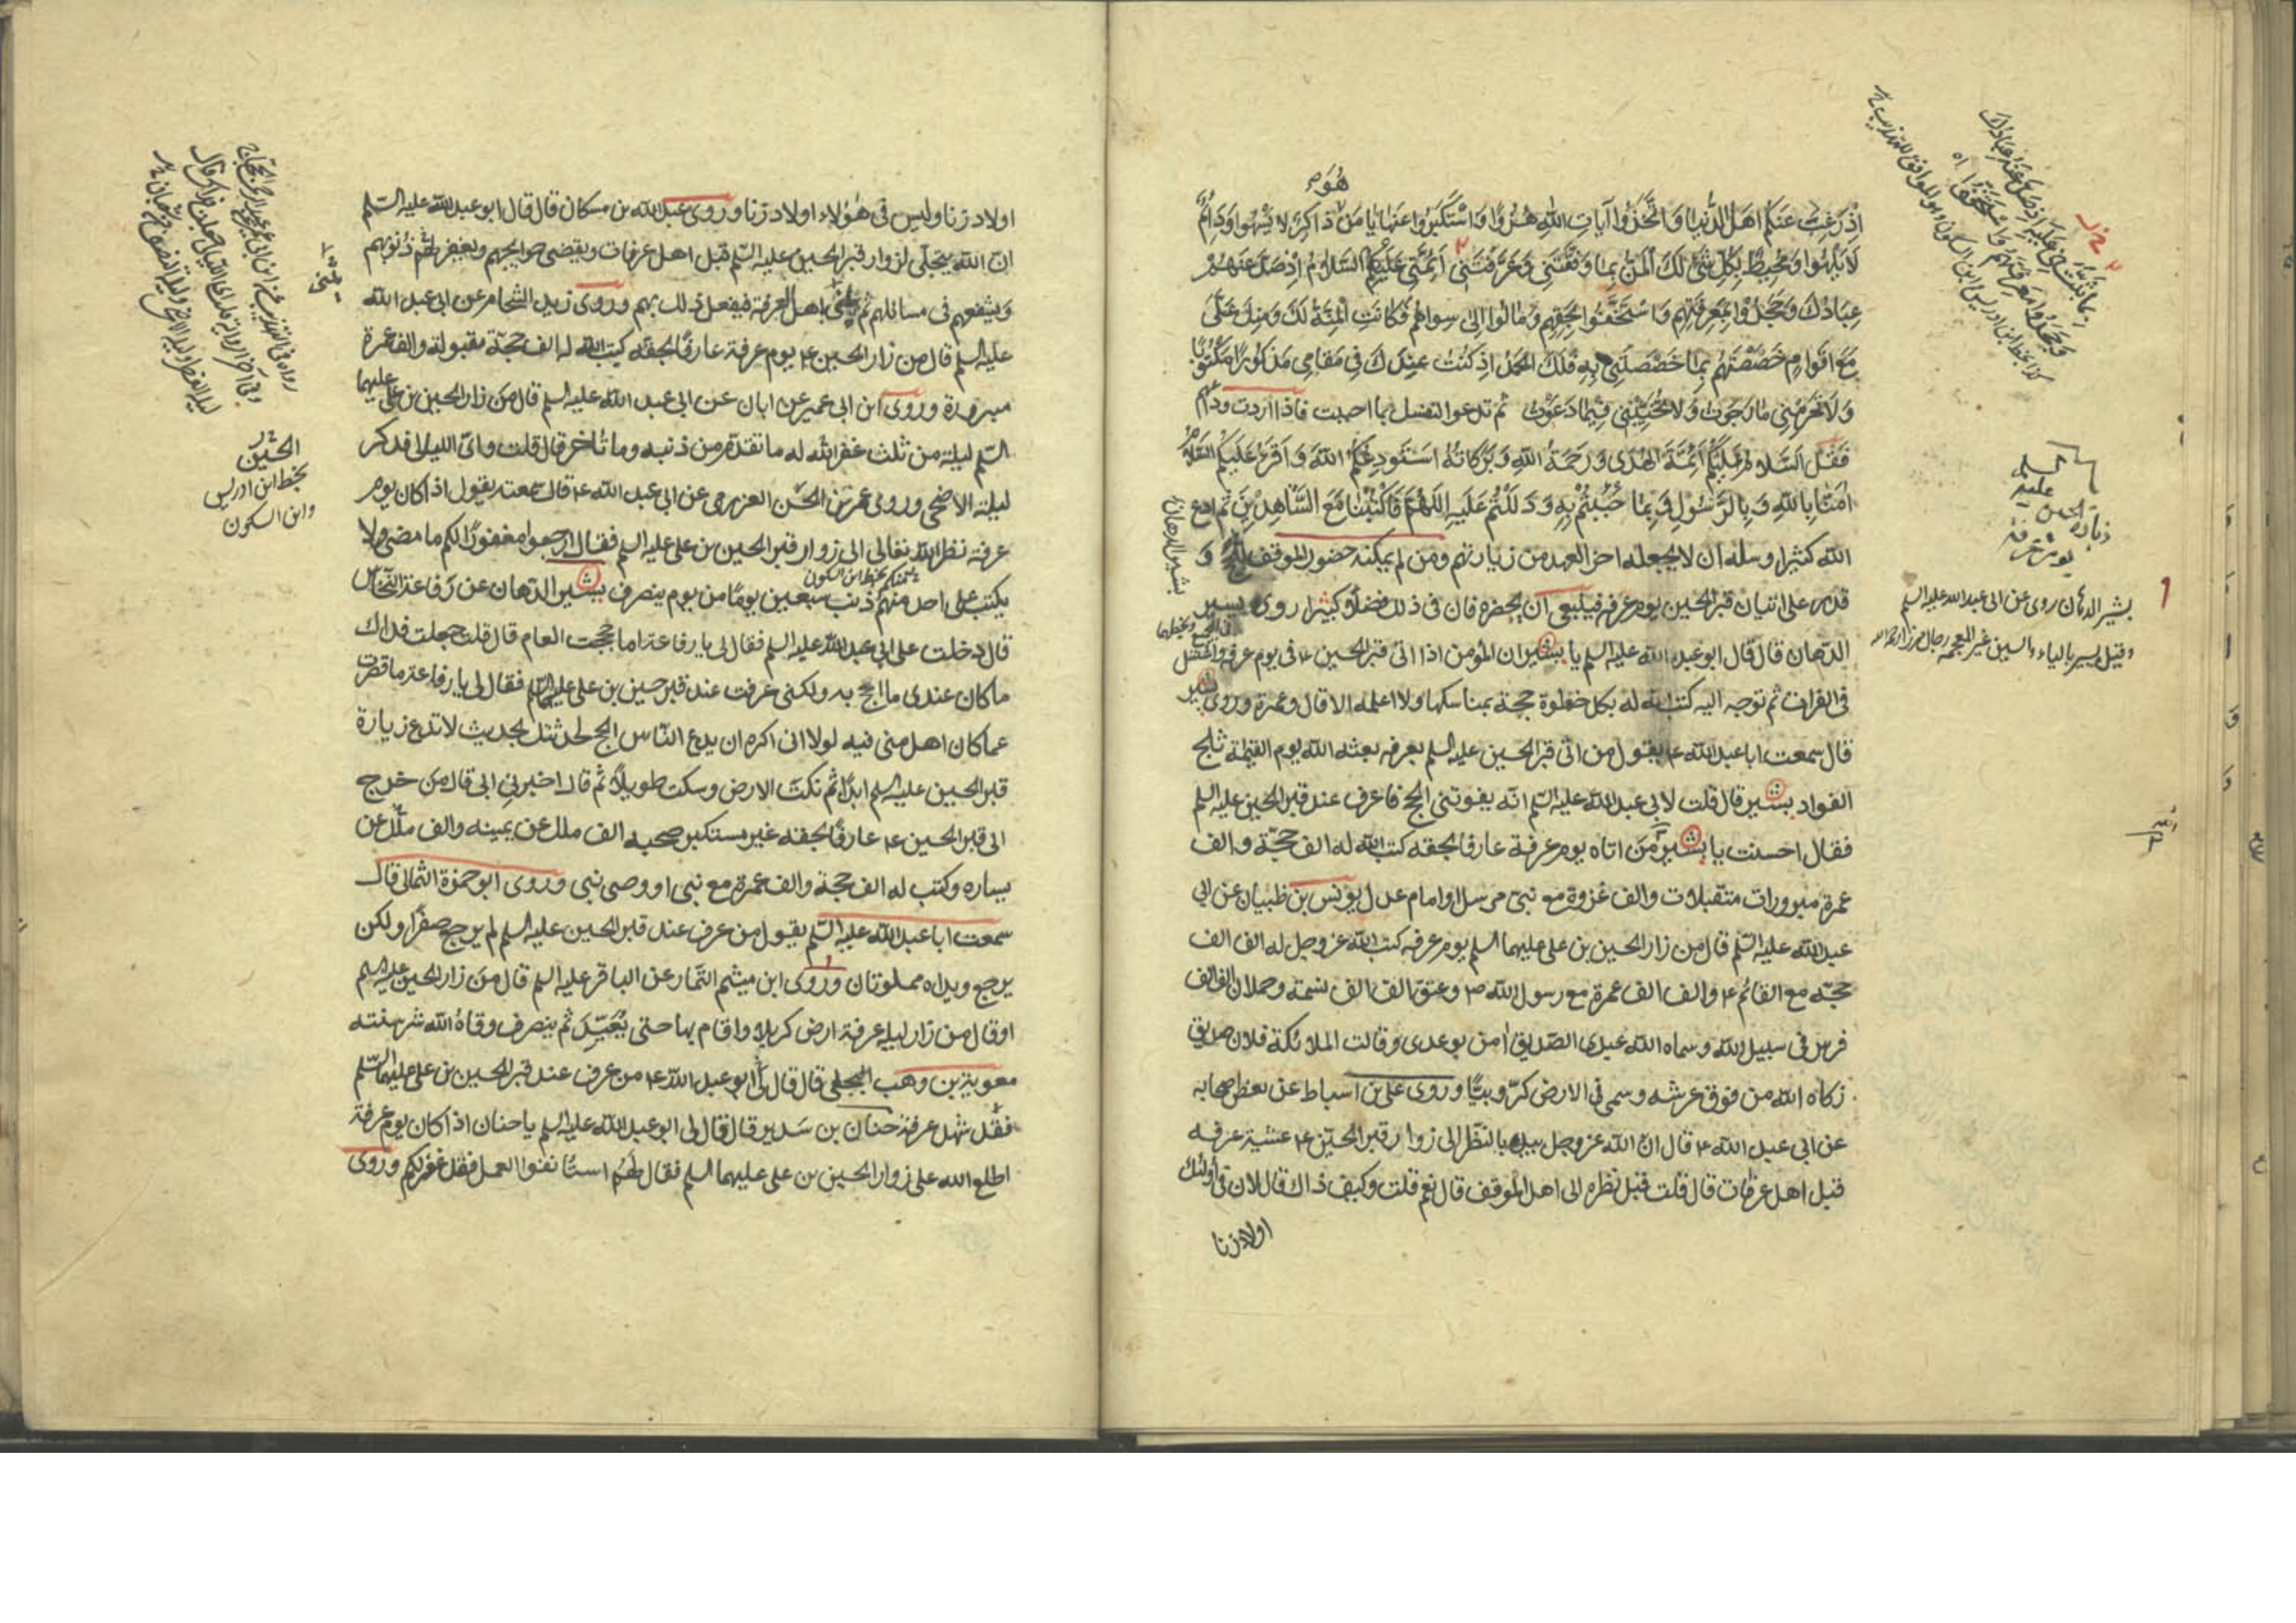 هُوَ
إِذْ رَغِبَ عَنكُم اهَلُ الدُّنيا وَاتَّخَذُوا آيَاتِ اللهِ هُزُوًا وَاسْتَكْبَرُوا عَنهَا يَا مَنْ ذَاكِرٌ لا يَسْهُوا وَدَائِمٌ
لَا يَلْهُوا وَمُحِيطٌ بِكُلِّ شَئٍ لَكَ الْمَنُّ بِمَا وَفَّقْتَنِي وَعَرَّفْتَنِي أَئِمَّتِي عَلَيْهِمُ السَّلَامُ اِذْ ضَلَّ عَنهُمْ
عِبَادُكَ وَجَحَدُوْا مَعْرِفَتَهِم وَاسْتَخَفُّوا بِحَقِّهِمِ وَمَالُوا إِلىٰ سِوَاهُمْ فَكَانَتِ الْمِنَّةُ لَكَ وَمِنْكَ عَلَىَّ
مَعَ اَقوَامٍ خَصَصْتَهُمْ بِمَا خَصَصْتَنِي بِهِ فَلَكَ الْحَمْدُ اِذ كُنْتُ عِنْدَكَ فِي مَقَامِى مَذْكُورًا مَكْتُوبًا
وَلَا تَحْرِمْنِي مَا رَجَوْتُ وَلَا تُخَيِّبْنِي فِيْمَا دَعَوْتُ ثم تدعو لنفسك بما احببت فاذا اردت وداعهم
فَقُل اَلسَّلامُ عَلَيْكُمْ اَئِمَّةَ الْهُدَى وَرَحمَةُ اللهِ وَبَرَكَاتُهُ اَسْتَودِعُكُمُ اللهَ وَاَقْرَءُ عَلَيكُمُ السَّلامَ
امَنَّا بِاللهِ وَبِالرَّسُوْلِ وَبِمَا جِئْتُمْ بِهِ وَدَلَلْتُمْ عَلَيهِ اَللّهُمَّ فَاكْتُبْنَا مَعَ الشَّاهِدِيْنَ ثم ادع
الله كثيرا وسله ان لا يجعله اخر العهد من زيارتهم ومن لم يمكنه حضور الموقف و
قدر على اتيان قبر الحسين يوم عرفه فينبغي ان يحضره فان في ذلك فضلاً كثيرا روى بشير
الدّهان قال قال ابو عبد الله عليه السلم يا بشير ان المؤمن اذا اتى قبر الحسين ع في يوم عرفه واغتسل
في الفرات ثم توجه اليه كتب الله له بكل خطوة حجة بمناسكها ولا اعلمه الا قال وعمرة وروى بشير
قال سمعت ابا عبد الله ع يقول من اتى قبر الحسين عليه السلم بعرفه بعثه الله يوم القيمة ثلج
الفواد بشير قال قلت لابي عبد الله عليه السّلم انّه يفوتني الحج فاعرف عند قبر الحسين عليه السلم
فقال احسنت يا بشير مَن اتاه يوم عرفة عارفا بحقه كتب الله له الف حجّة والف
عمرة مبرورات متقبلات والف غزوة مع نبي مرسل او امام عدل يونس بن ظبيان عن ابي
عبد الله عليه السّلم قال من زار الحسين بن علي عليهما السلم يوم عرفه كتب الله عز وجل له الف الف
حجّه مع القائم ع والف الف عمرة مع رسول الله ص وعتق الف الف نسمة وحملان الف الف
فرس في سبيل الله وسماه الله عبدى الصّديق امن بوعدى وقالت الملائكة فلان صديق
زكاه الله من فوق عرشه وسمى في الارض كرّوبيًّا وروى علي بن اسباط عن بعض اصحابه
عن ابي عبد الله ع قال انّ الله عز وجل يبدء بالنظر الى زوار قبر الحسين ع عشية عرفه
قبل اهل عرفات قال قلت قبل نظره الى اهل الموقف قال نعم قلت وكيف ذاك قال لان في أولئك
اولاد زنا
السلم
عليه
الحسين
زيارة
يوم عرفة
بشير الدهان روى عن ابي عبد الله عليه السلم
وقيل يسير بالياء والسين غير المعجمه رجال
بشير الدهان
اولاد زنا وليس في هؤلاء اولاد زنا وروى عبد الله بن مسكان قال قال ابو عبد الله عليه السّلم
انّ الله يتجلّى لزوار قبر الحسين عليه السّلم قبل اهل عرفات ويقضى حوايجهم ويغفر لهم ذنوبهم
ويشفعهم في مسائلهم ثم يثنى باهل العرفة فيفعل ذلك بهم وروى زيد الشحام عن ابي عبد الله
عليه السلم قال من زار الحسين ع يوم عرفة عارفًا بحقه كتب الله له الف حجة مقبولة والف عمرة
مبرورة وروى ابن ابي عمير عن ابان عن ابي عبد الله عليه السلم قال من زار الحسين بن علي عليهما
السّلم ليلة من ثلث غفر الله له ما تقدّم من ذنبه وما تأخر قال قلت واىّ الليالى فذكر
ليلة الاضحى وروى عمر بن الحسن العرزمى عن ابي عبد الله ع قال سمعته يقول اذا كان يوم
عرفة نظر الله تعالى الى زوار قبر الحسين بن علي عليه السلم فقال ارجعوا مغفورًا لكم ما مضى ولا
يكتب على احد منهم ذنب سبعين يومًا من يوم ينصرف بشير الدّهان عن رفاعة النّخاس
قال دخلت على ابي عبد الله عليه السلم فقال لي يا رفاعة اما حججت العام قال قلت جعلت فداك
ما كان عندى ما احج به ولكنى عرفت عند قبر حسين بن علي عليهما السّلم فقال لي يا رفاعة ما قصرت
عما كان اهل منى فيه لولا انى اكره ان يدع النّاس الحج لحدثتك بحديث لا تدع زيارة
قبر الحسين عليه السلم ابدًا ثم نكت الارض وسكت طويلًا ثم قال اخبرني ابي قال من خرج
الى قبر الحسين ع عارفًا بحقه غير مستكبر صحبه الف ملك عن يمينه والف ملك عن
يساره وكتب له الف حجة والف عمرة مع نبي او وصى نبي وروى ابو حمزة الثمالى قال
سمعت ابا عبد الله عليه السّلم يقول من عرف عند قبر الحسين عليه السلم لم يرجع صفرًا ولكن
يرجع ويداه مملوتان وروى ابن ميثم التّمار عن الباقر عليه السلم قال من زار الحسين عليه السلم
او قال من زار ليلة عرفة ارض كربلا واقام بها حتى يُعَيِّدَ ثم ينصرف وقاهُ الله شر سنته
معوية بن وهب البجلي قال قال لي ابو عبد الله ع من عرف عند قبر الحسين بن علي عليهما السّلم
فقد شهد عرفة حنان بن سَدير قال قال لي ابو عبد الله عليه السلم يا حنان اذا كان يوم عرفة
اطلع الله على زوار الحسين بن علي عليهما السلم فقال لهُم استأنفوا العمل فقد غفر لكم وروى
الحسين
بخط ابن ادريس
وابن السكون